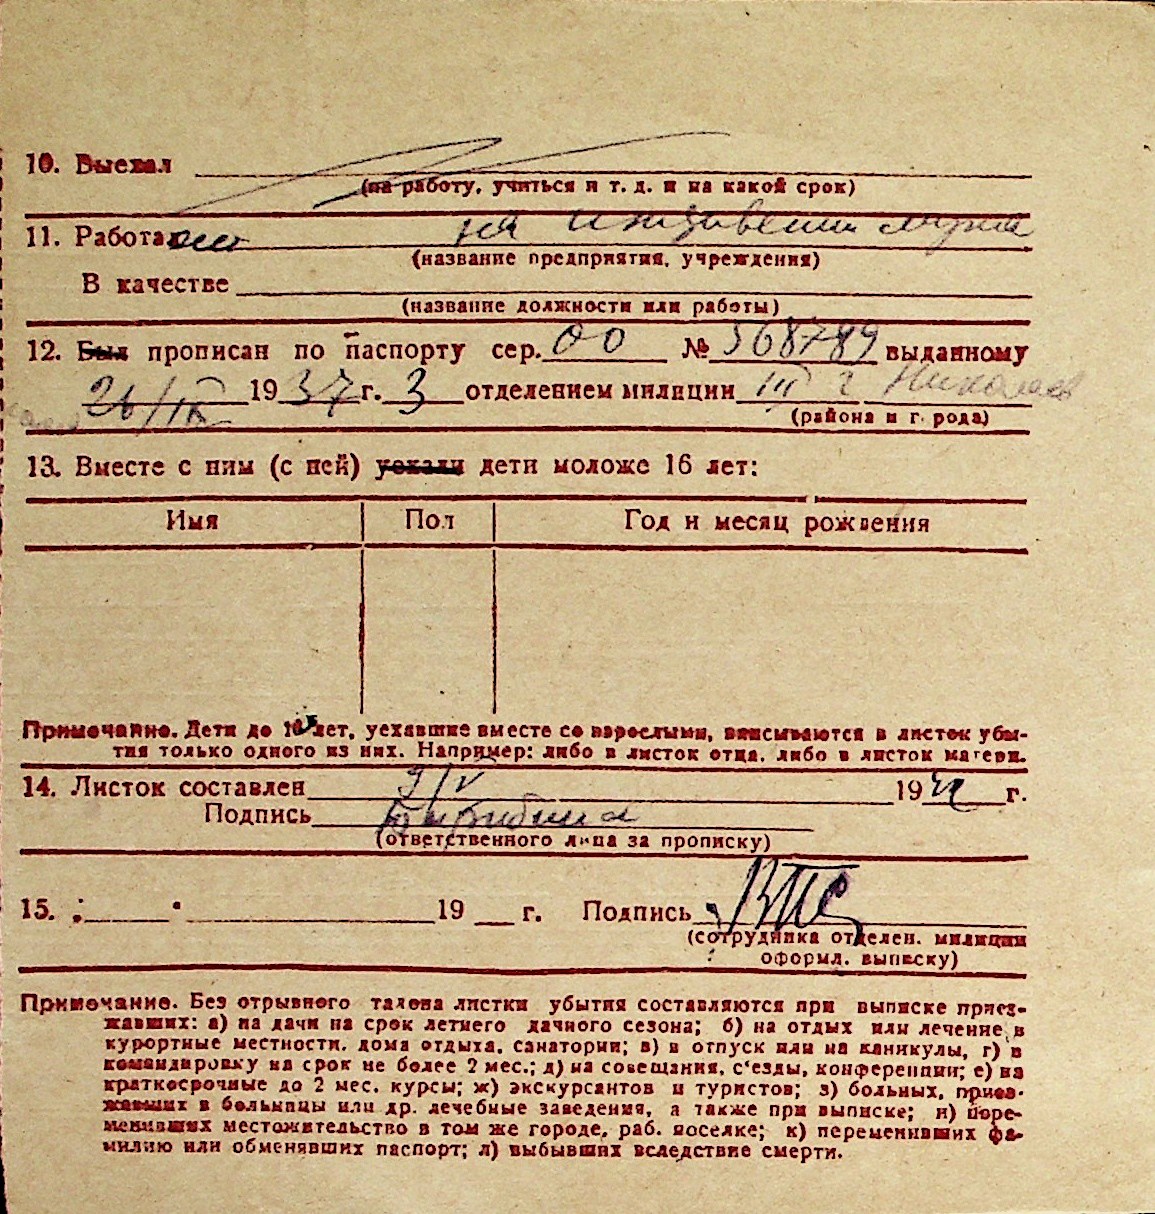 10. Выехал
(на работу, учиться и т. д. и на какой срок)
11. Работа на иждивении мужа
(название предприятия, учреждения)
В качестве
(название должности или работы)
12. Был прописан по паспорту сер. 00 № 568789 выданному
26/IX 1937 г. 3 отделением милиции III г Николаев
(района и г. рода)
13. Вместе с ним (с ней) уехали дети моложе 16 лет:
Имя Пол Год и месяц рождения
Примечание. Дети до 16 лет, уехавшие вместе со взрослыми, вписываются в листок убы-
тия только одного из них. Например: либо в листок отца, либо в листок матери.
14. Листок составлен 9/V 19 г.
Подпись
(ответственного лица за прописку)
15. „ " 19 г. Подпись
(сотрудника отделен. милиции
оформл. выписку)
Примечание. Без отрывного талона листки убытия составляются при выписке приез-
жавших: а) на дачи на срок летнего дачного сезона; б) на отдых или лечение в
курортные местности, дома отдыха, санатории; в) в отпуск или на каникулы, г) в
командировку на срок не более 2 мес.; д) на совещания, с'езды, конференции; е) на
краткосрочные до 2 мес. курсы; ж) экскурсантов и туристов; з) больных, приез-
жавших в больницы или др. лечебные заведения, а также при выписке; и) пере-
менивших местожительство в том же городе, раб. поселке; к) переменивших фа-
милию или обменявших паспорт; л) выбывших вследствие смерти.